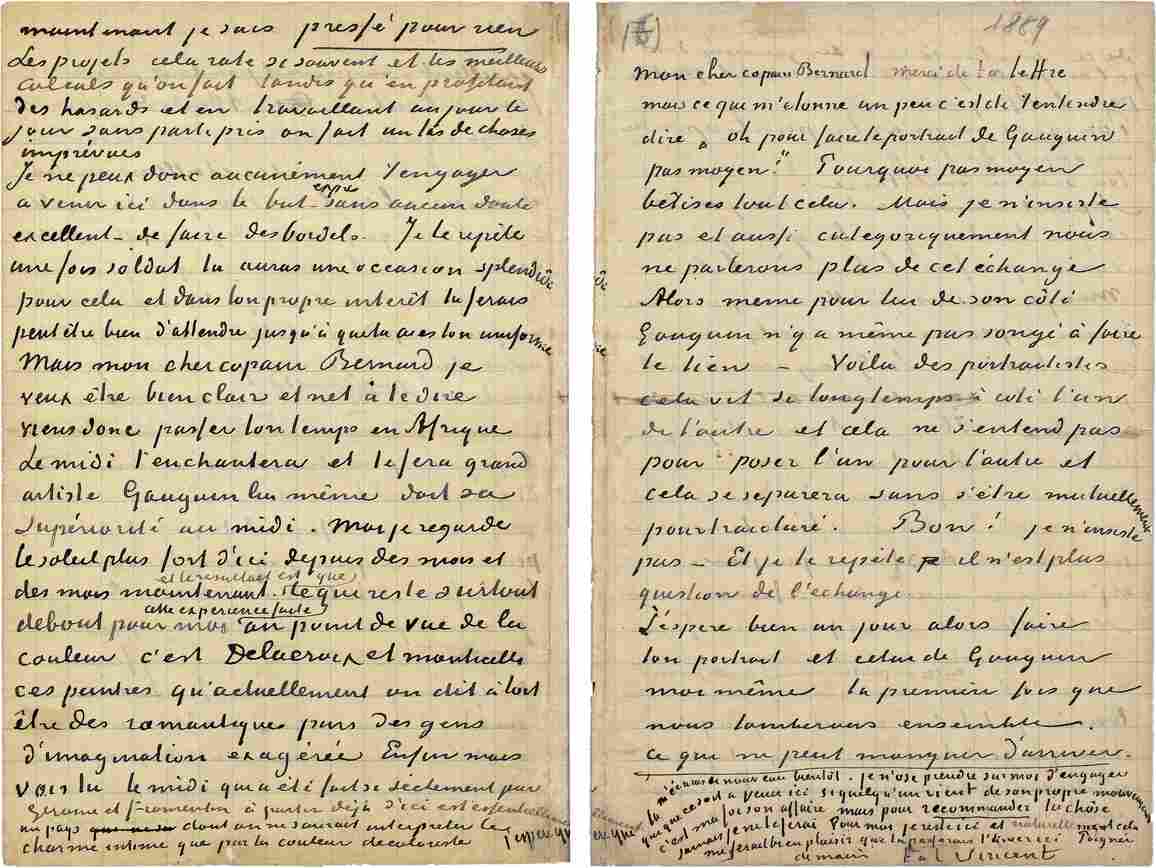 maintenant je suis pressé pour rien
Les projets cela rate si souvent et les meilleurs
calculs qu'on fait tandis qu'en profitant
des hasards et en travaillant au jour le
jour sans parti pris on fait un tas de choses
imprévues
Je ne peux donc aucunément t'engager
a venir ici dans le but exprès sans aucun doute
excellent – de faire des bordels. Je te repète
une fois soldat tu auras une occasion splendide
pour cela et dans ton propre interêt tu ferais
peut être bien d'attendre jusqu'à que tu aies ton uniforme
Mais mon cher copain Bernard je
veux être bien clair et net à te dire
viens donc passer ton temps en Afrique
Le midi t'enchantera et te fera grand
artiste Gauguin lui même doit sa
supériorité au midi. Moi je regarde
le soleil plus fort d'ici depuis des mois et
des mois maintenant. et le resultat est que
cette experience faite ce qui reste surtout
debout pour moi au point de vue de la
couleur c'est Delacroix et monticelli
ces peintres qu'actuellement on dit à tort
être des romantique purs des gens
d'imagination exagérée Enfin mais
vois tu le midi qui a été fait si sèchement par
Gerome et Fromentin à partir déjà d'ici est essentiellement
un pays dont on ne saurait interpreter le
charme intime que par la couleur du coloriste
j'espère que
1889
mon cher copain Bernard merci de ta lettre
mais ce qui m'étonne un peu c'est de t'entendre
dire „ oh pour faire le portrait de Gauguin
pas moyen!" Pourquoi pas moyen
bêtises tout cela. Mais je n'insiste
pas et aussi categoriquement nous
ne parlerons plus de cet échange
Alors meme pour lui de son côté
Gauguin n'y a même pas songé à faire
le tien – Voilà des portraitistes
cela vit si longtemps à coté l'un
de l'autre et cela ne s'entend pas
pour poser l'un pour l'autre et
cela se separera sans s'être mutuellement
pourtraicturé. Bon! je n'insiste
pas – Et je te repète il n'est plus
question de l'échange.
J'espère bien un jour alors faire
ton portrait et celui de Gauguin
moi même la première fois que
nous tomberons ensemble.
ce qui ne peut manquer d'arriver.
tu m'écriras de nouveau bientôt. je n'ose prendre sur moi d'engager
qui que ce soit a venir ici si quelqu'un vient de son propre mouvement
c'est ma foi son affaire mais pour recommander la chose
jamais je ne le ferai Pour moi je reste ici et naturellement cela
me ferait bien plaisir que tu passerais l'hiver ici Poignée
de main t. à t. Vincent